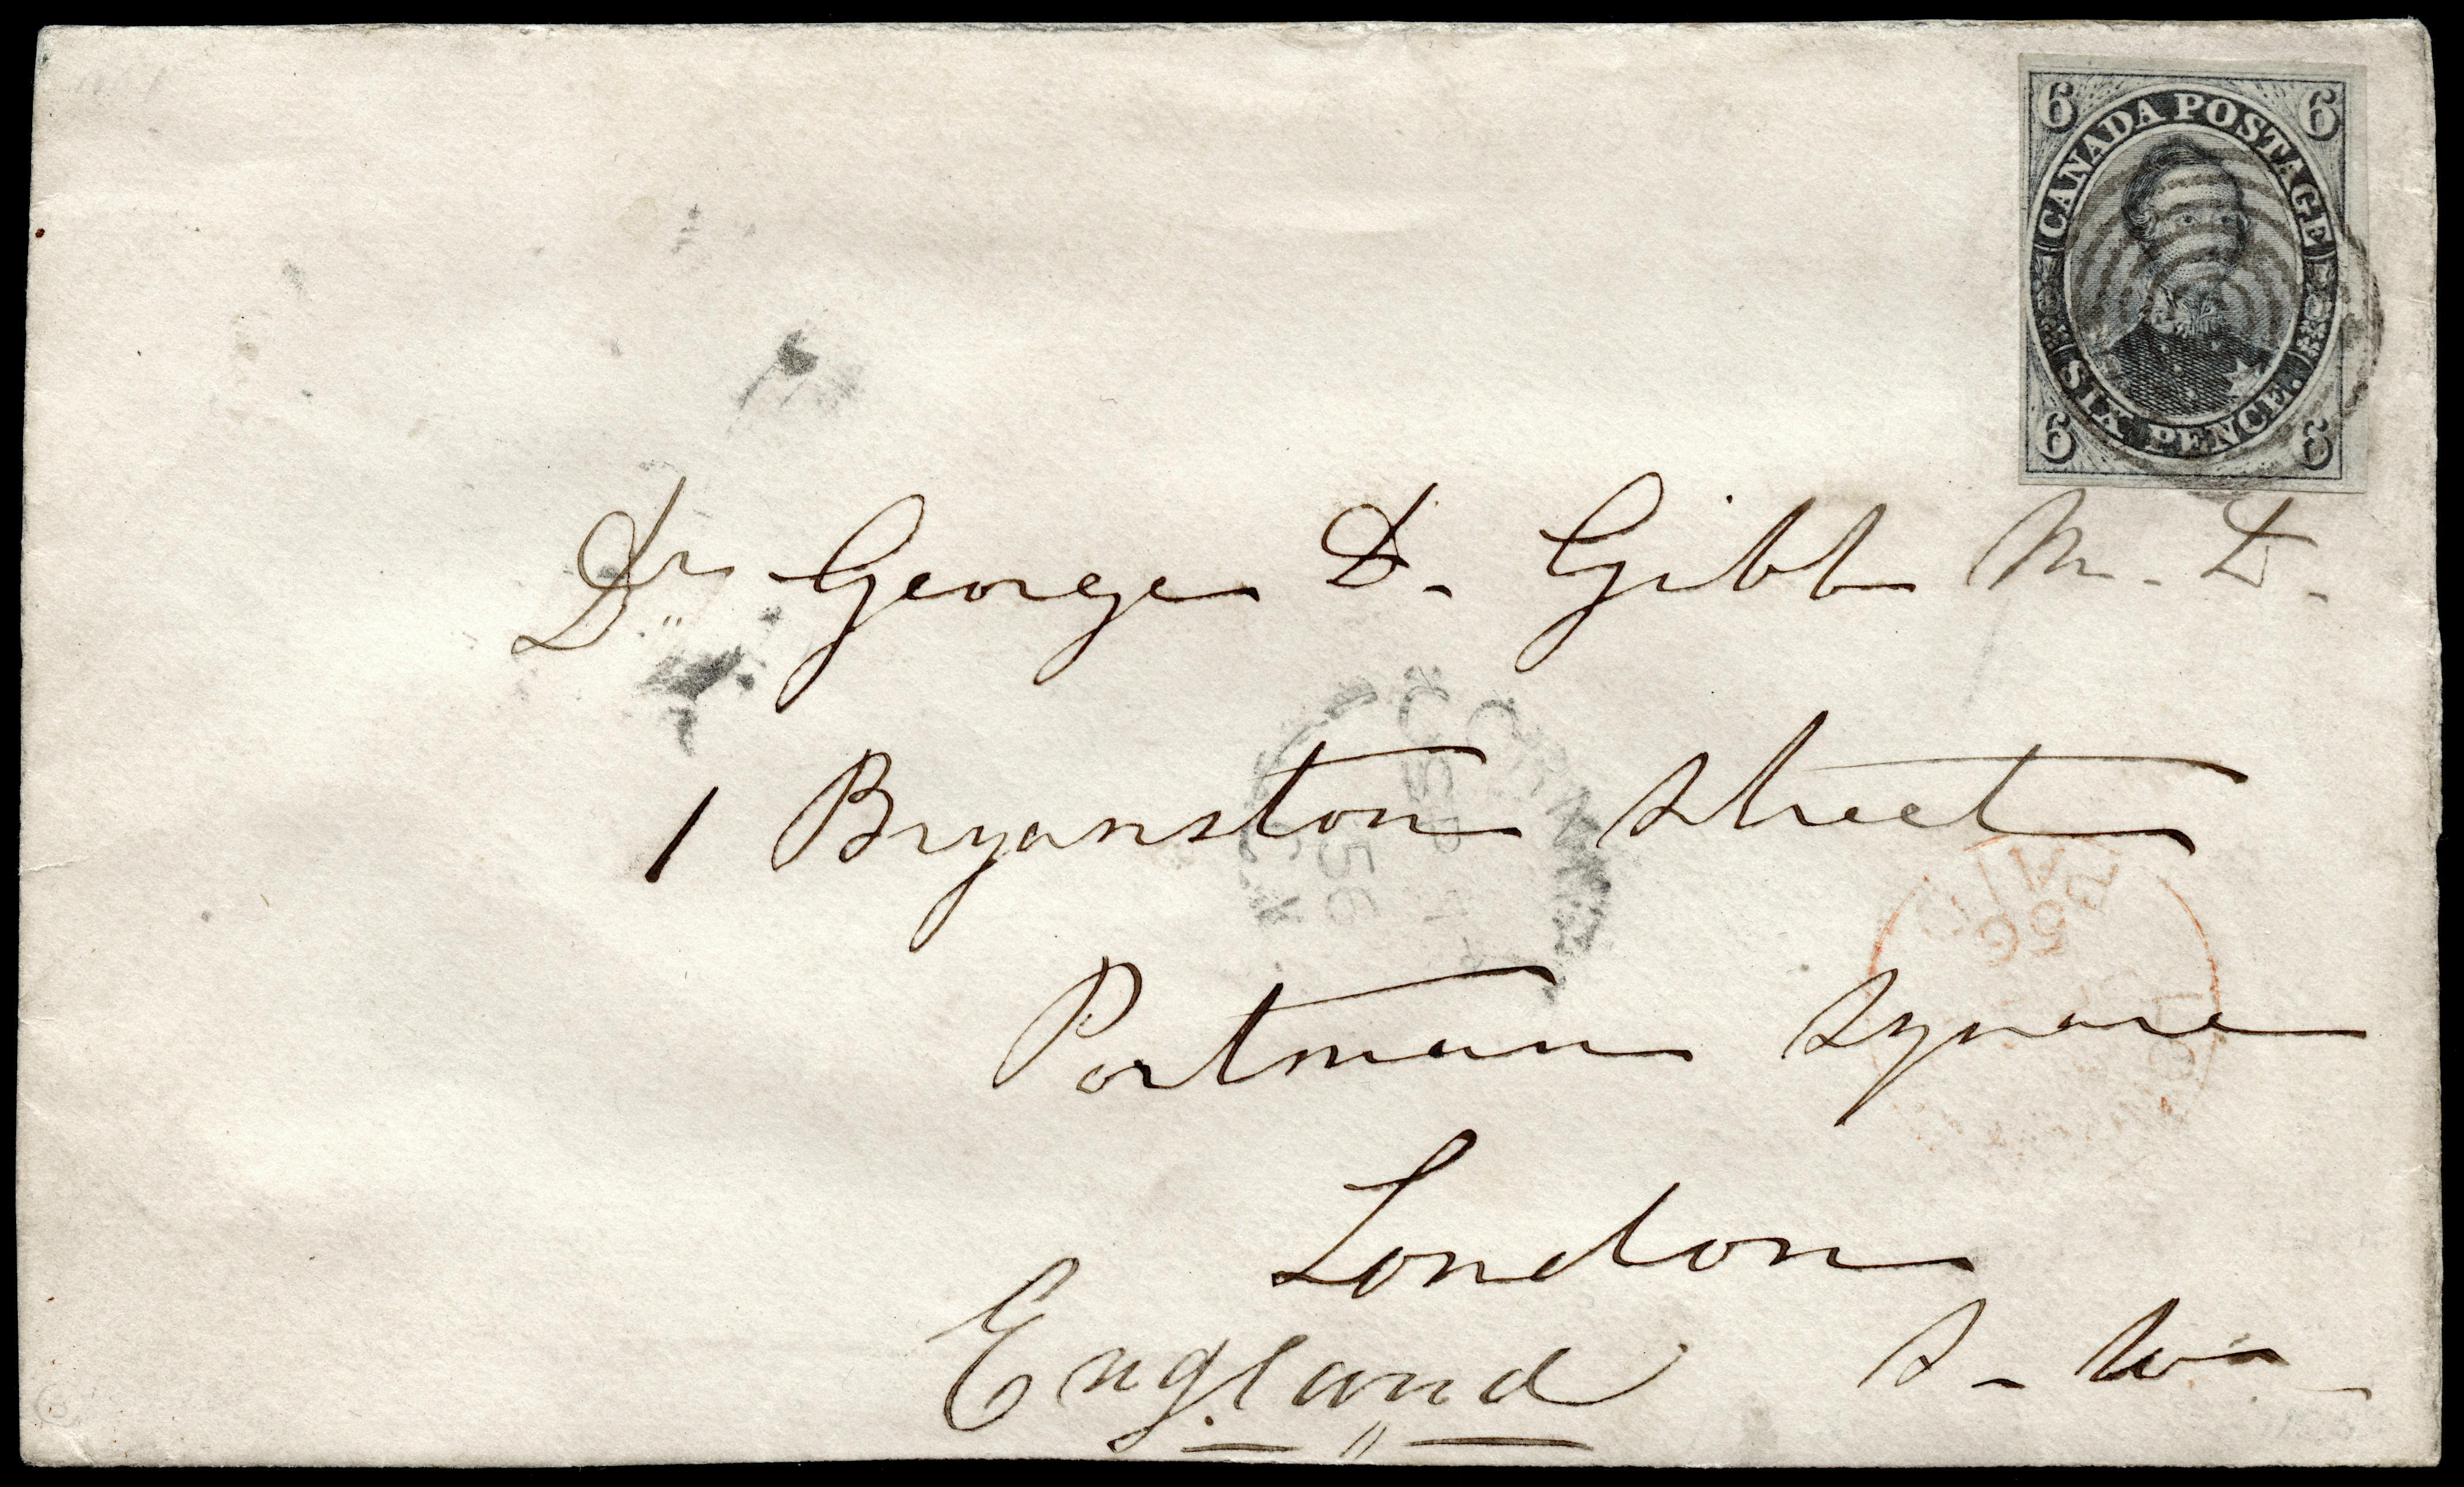 6 6
CANADA POSTAGE
SIX PENCE.
6 6
Dr George D. Gibb M. D.
1 Bryanston Street
Portman Square
London
England S. W.
SP
56
PAID
56